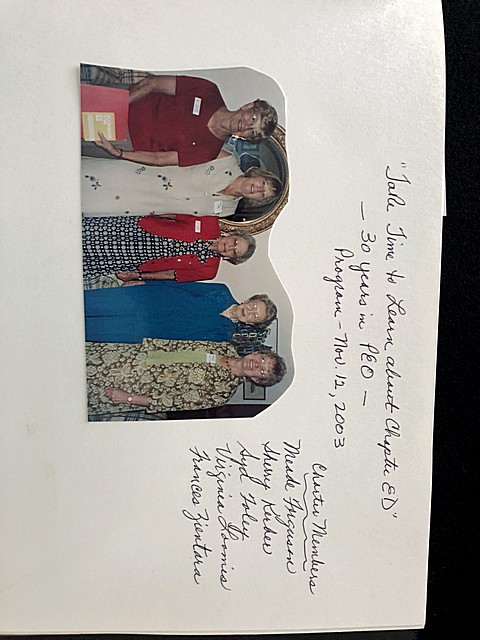 "Take Time to Learn about Chapter ED"
— 30 years in PEO —
Program - Nov. 12, 2003
Charter Members
Meade Ferguson
Sherry Kerber
Syd Foley
Virginia Loomis
Frances Zientara